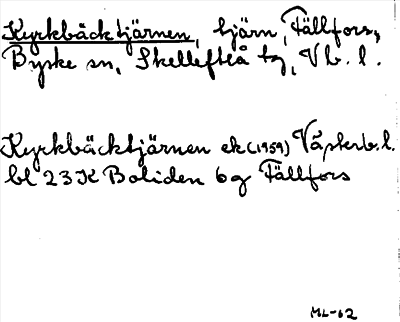 Kyrkbäcktjärnen, tjärn, Fällfors,
Byske sn, Skellefteå tg, Vb. l.
Kyrkbäcktjärnen ek (1959) Västerb. l.
bl 23K Boliden 6g Fällfors
ML-62